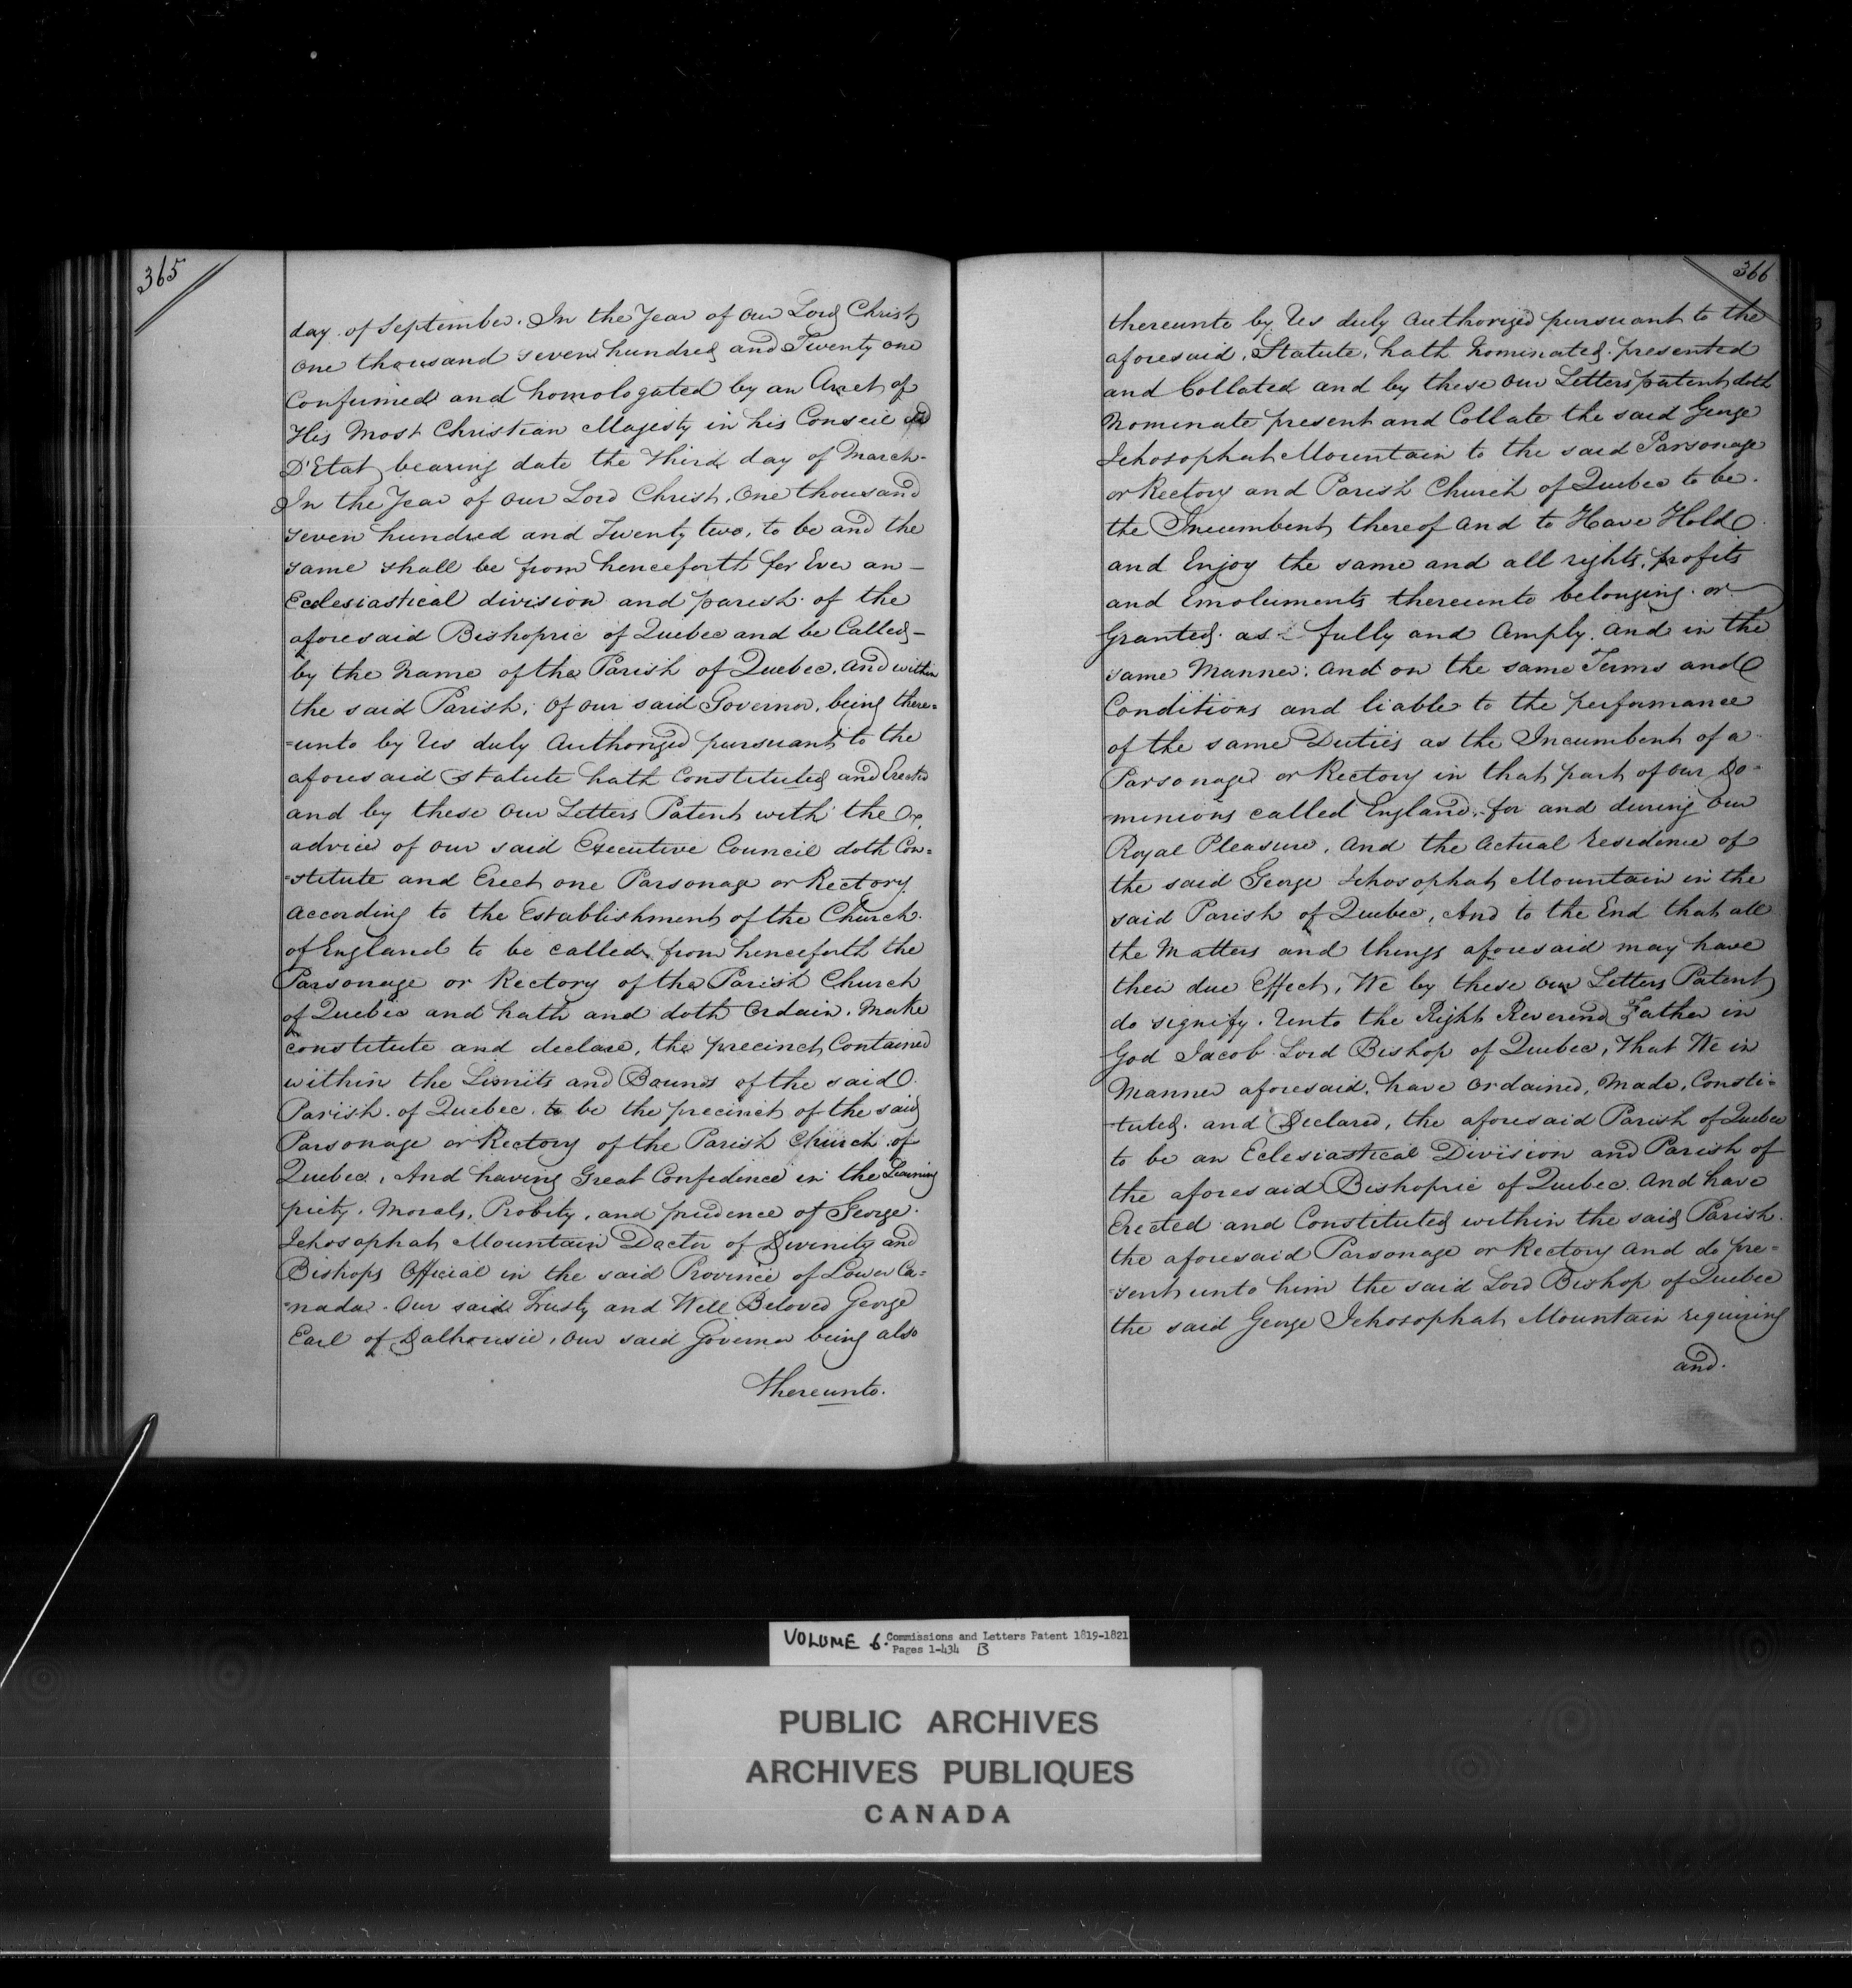 365
day of September. In the Year of our Lord Christ
One thousand seven hundred and Twenty one
Confirmed and homologated by an Arret of
His Most Christian Majesty in his Conseil
D'Etat bearing date the third day of March
In the Year of our Lord Christ, One thousand
seven hundred and Twenty two, to be and the
same shall be from henceforth for Ever an
Ecclesiastical division and parish of the
aforesaid Bishopric of Quebec and be Called
by the Name of the Parish of Quebec, And within
the said Parish, Of our said Governor, being there=
=unto by Us duly Authorized pursuant to the
aforesaid Statute hath Constituted and Erected
and by these Our Letters Patent with the
advice of our said Executive Council doth Con=
=stitute and Erect one Parsonage or Rectory
According to the Establishment of the Church
of England to be called from henceforth the
Parsonage or Rectory of the Parish Church
of Quebec and hath and doth Ordain, Make
constitute and declare, the precinct Contained
within the Limits and Bounds of the said
Parish of Quebec to be the precinct of the said
Parsonage or Rectory of the Parish Church of
Quebec, And having Great Confidence in the Learning
piety, Morals, Probity, and prudence of George
Jehosophat Mountain Doctor of Divinity and
Bishops Official in the said Province of Lower Ca=
=nada. Our said Trusty and Well Beloved George
Earl of Dalhousie, Our said Governor being also
thereunto.
366
thereunto by Us duly Authorized pursuant to the
aforesaid, Statute, hath Nominated presented
and Collated and by these Our Letters patent doth
Nominate present and Collate the said George
Jehosophat Mountain to the said Parsonage
or Rectory and Parish Church of Quebec to be
the Incumbent thereof and to Have Hold
and Enjoy the same and all rights, profits
and Emoluments thereunto belonging or
Granted as fully and Amply, And in the
same Manner, And on the same Terms and
Conditions and liable to the performance
of the same Duties as the Incumbent of a
Parsonage or Rectory in that part of our Do=
minions called England, for and during Our
Royal Pleasure, And the Actual residence of
the said George Jehosophat Mountain in the
said Parish of Quebec, And to the End that all
the Matters and things aforesaid may have
their due Effect, We by these Our Letters Patent
do signify Unto the Right Reverend Father in
God Jacob Lord Bishop of Quebec, that We in
Manner aforesaid, have Ordained, Made, Consti=
tuted and Declared, the aforesaid Parish of Quebec
to be an Eclesiastical Division and Parish of
the aforesaid Bishopric of Quebec And have
Erected and Constituted within the said Parish
the aforesaid Parsonage or Rectory And do pre=
=sent unto him the said Lord Bishop of Quebec
the said George Jehosophat Mountain requiring
and.
VOLUME 6. Commissions and Letters Patent 1819-1821
Pages 1-434 B
PUBLIC ARCHIVES
ARCHIVES PUBLIQUES
CANADA